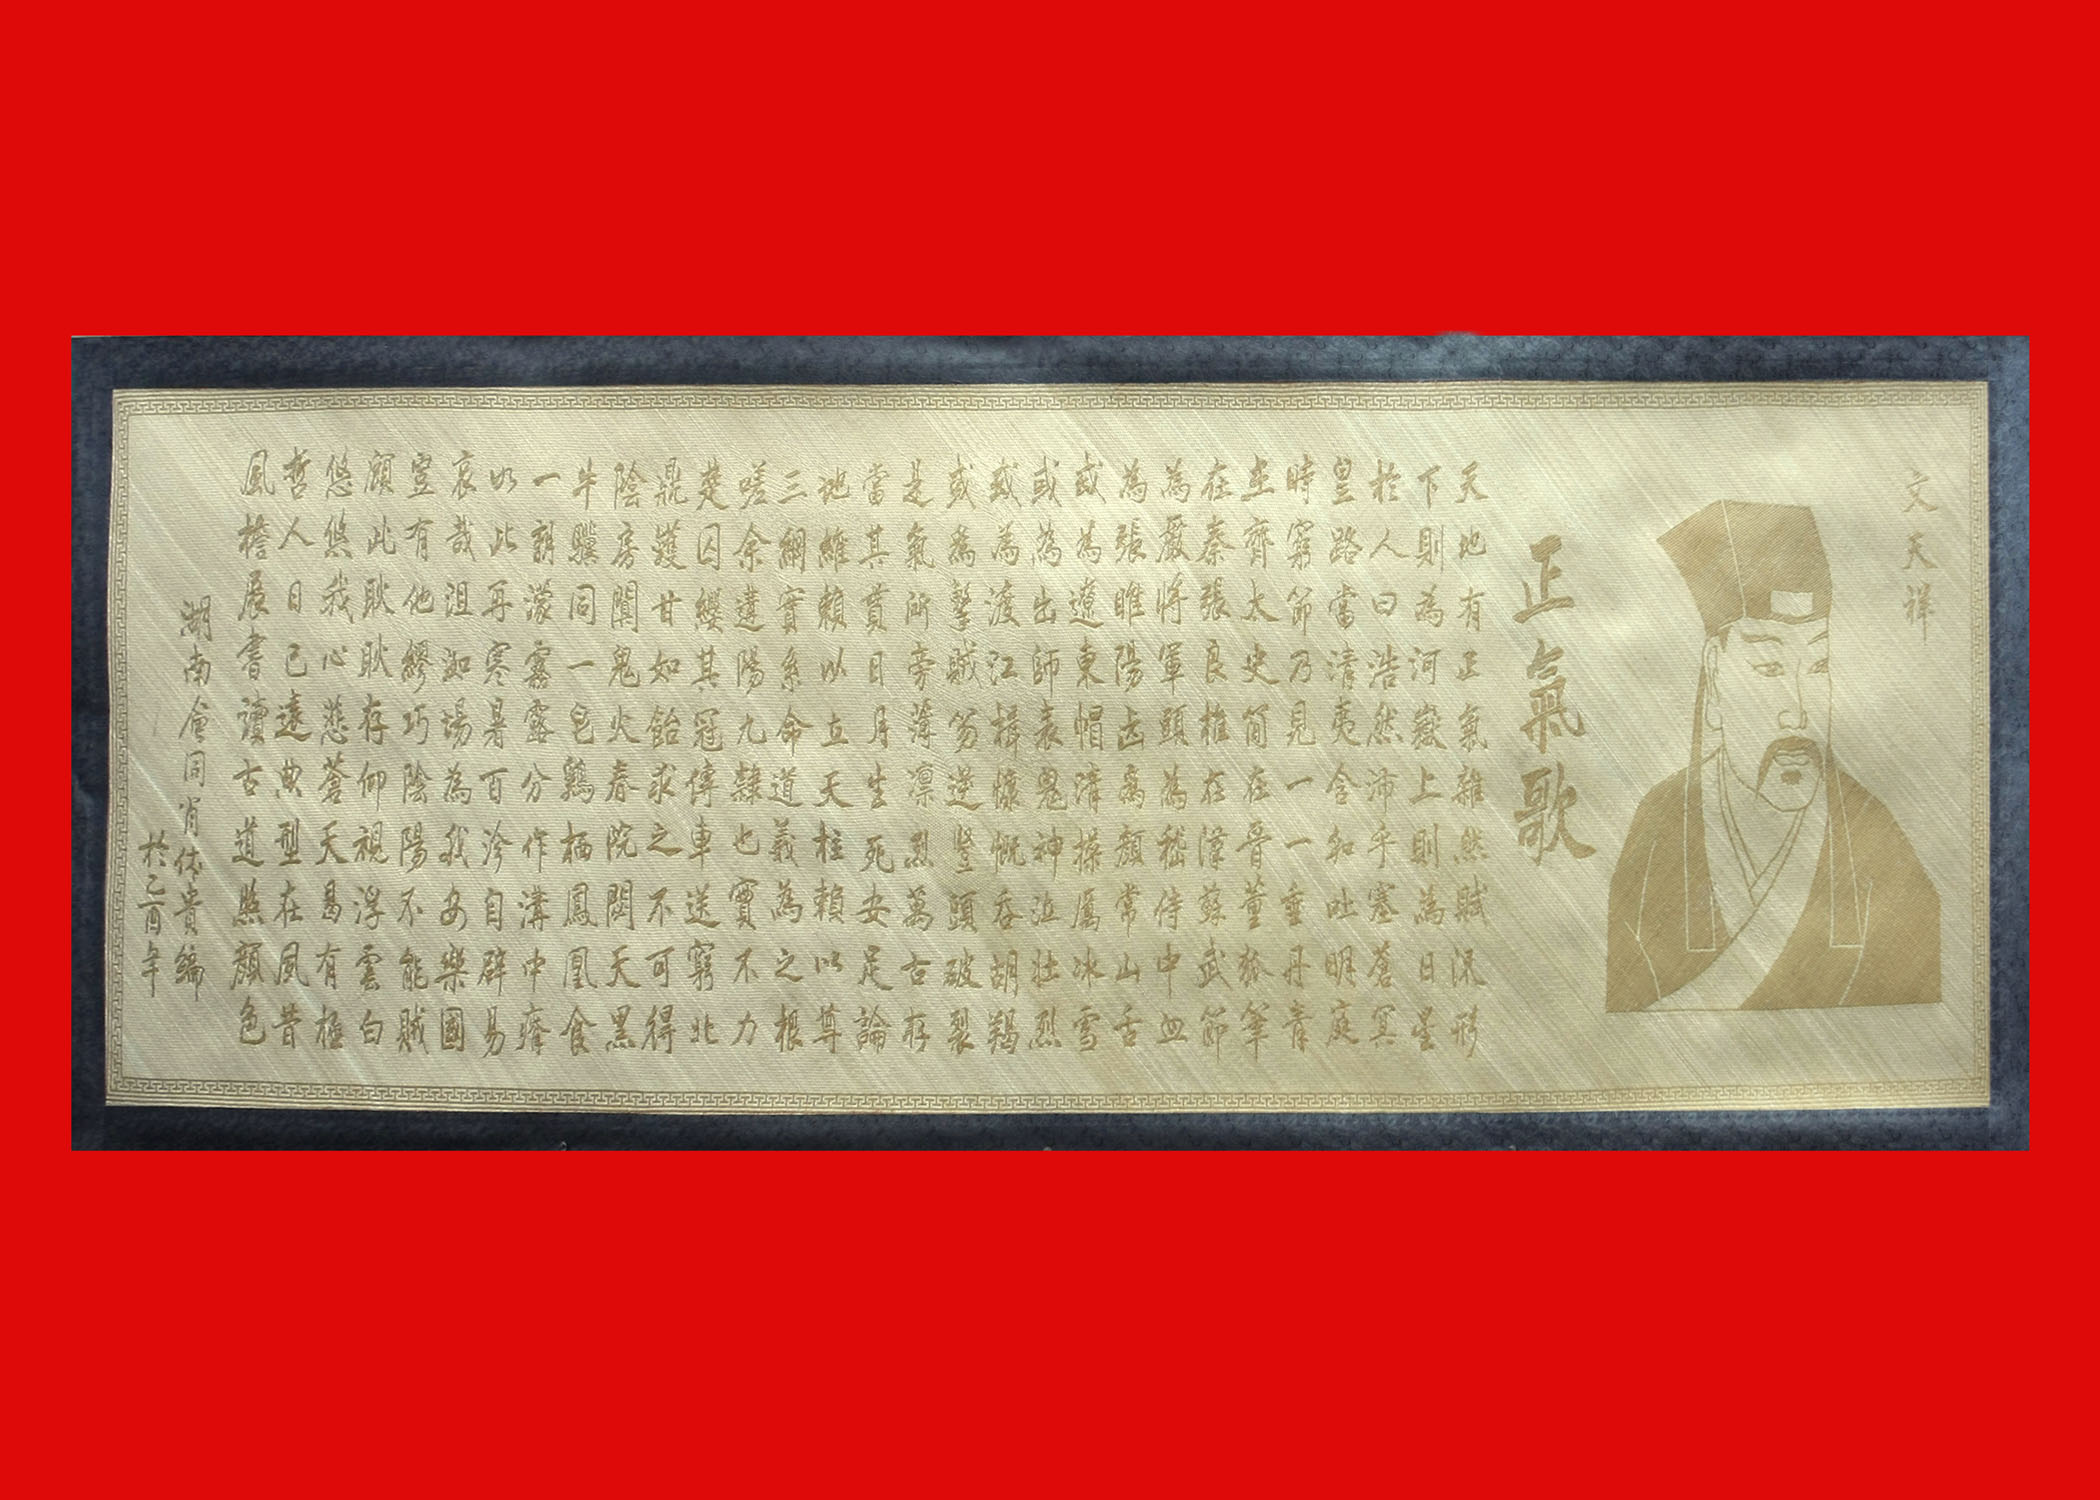 文天祥
正氣歌
天地有正氣雜然賦流形
下則為河嶽上則為日星
於人曰浩然沛乎塞蒼冥
皇路當清夷含和吐明庭
時窮節乃見一一垂丹青
在齊太史簡在晉董狐筆
在秦張良椎在漢蘇武節
為嚴將軍頭為嵇侍中血
為張睢陽齒為顏常山舌
或為遼東帽清操厲冰雪
或為出師表鬼神泣壯烈
或為渡江楫慷慨吞胡羯
或為擊賊笏逆豎頭破裂
是氣所旁薄凛烈萬古存
當其貫日月生死安足論
地維賴以立天柱賴以尊
三綱實系命道義為之根
嗟余遘陽九隸也實不力
楚囚纓其冠傳車送窮北
鼎鑊甘如飴求之不可得
陰房闐鬼火春院閟天黑
牛驥同一皂鷄栖鳳凰食
一朝濛霧露分作溝中瘠
如此再寒暑百沴自辟易
哀哉沮洳場為我安樂國
豈有他繆巧陰陽不能賊
顧此耿耿存仰視浮雲白
悠悠我心悲蒼天曷有極
哲人日已遠典型在夙昔
風檐展書讀古道照顏色
湖南會同肖体貴編
於乙酉年